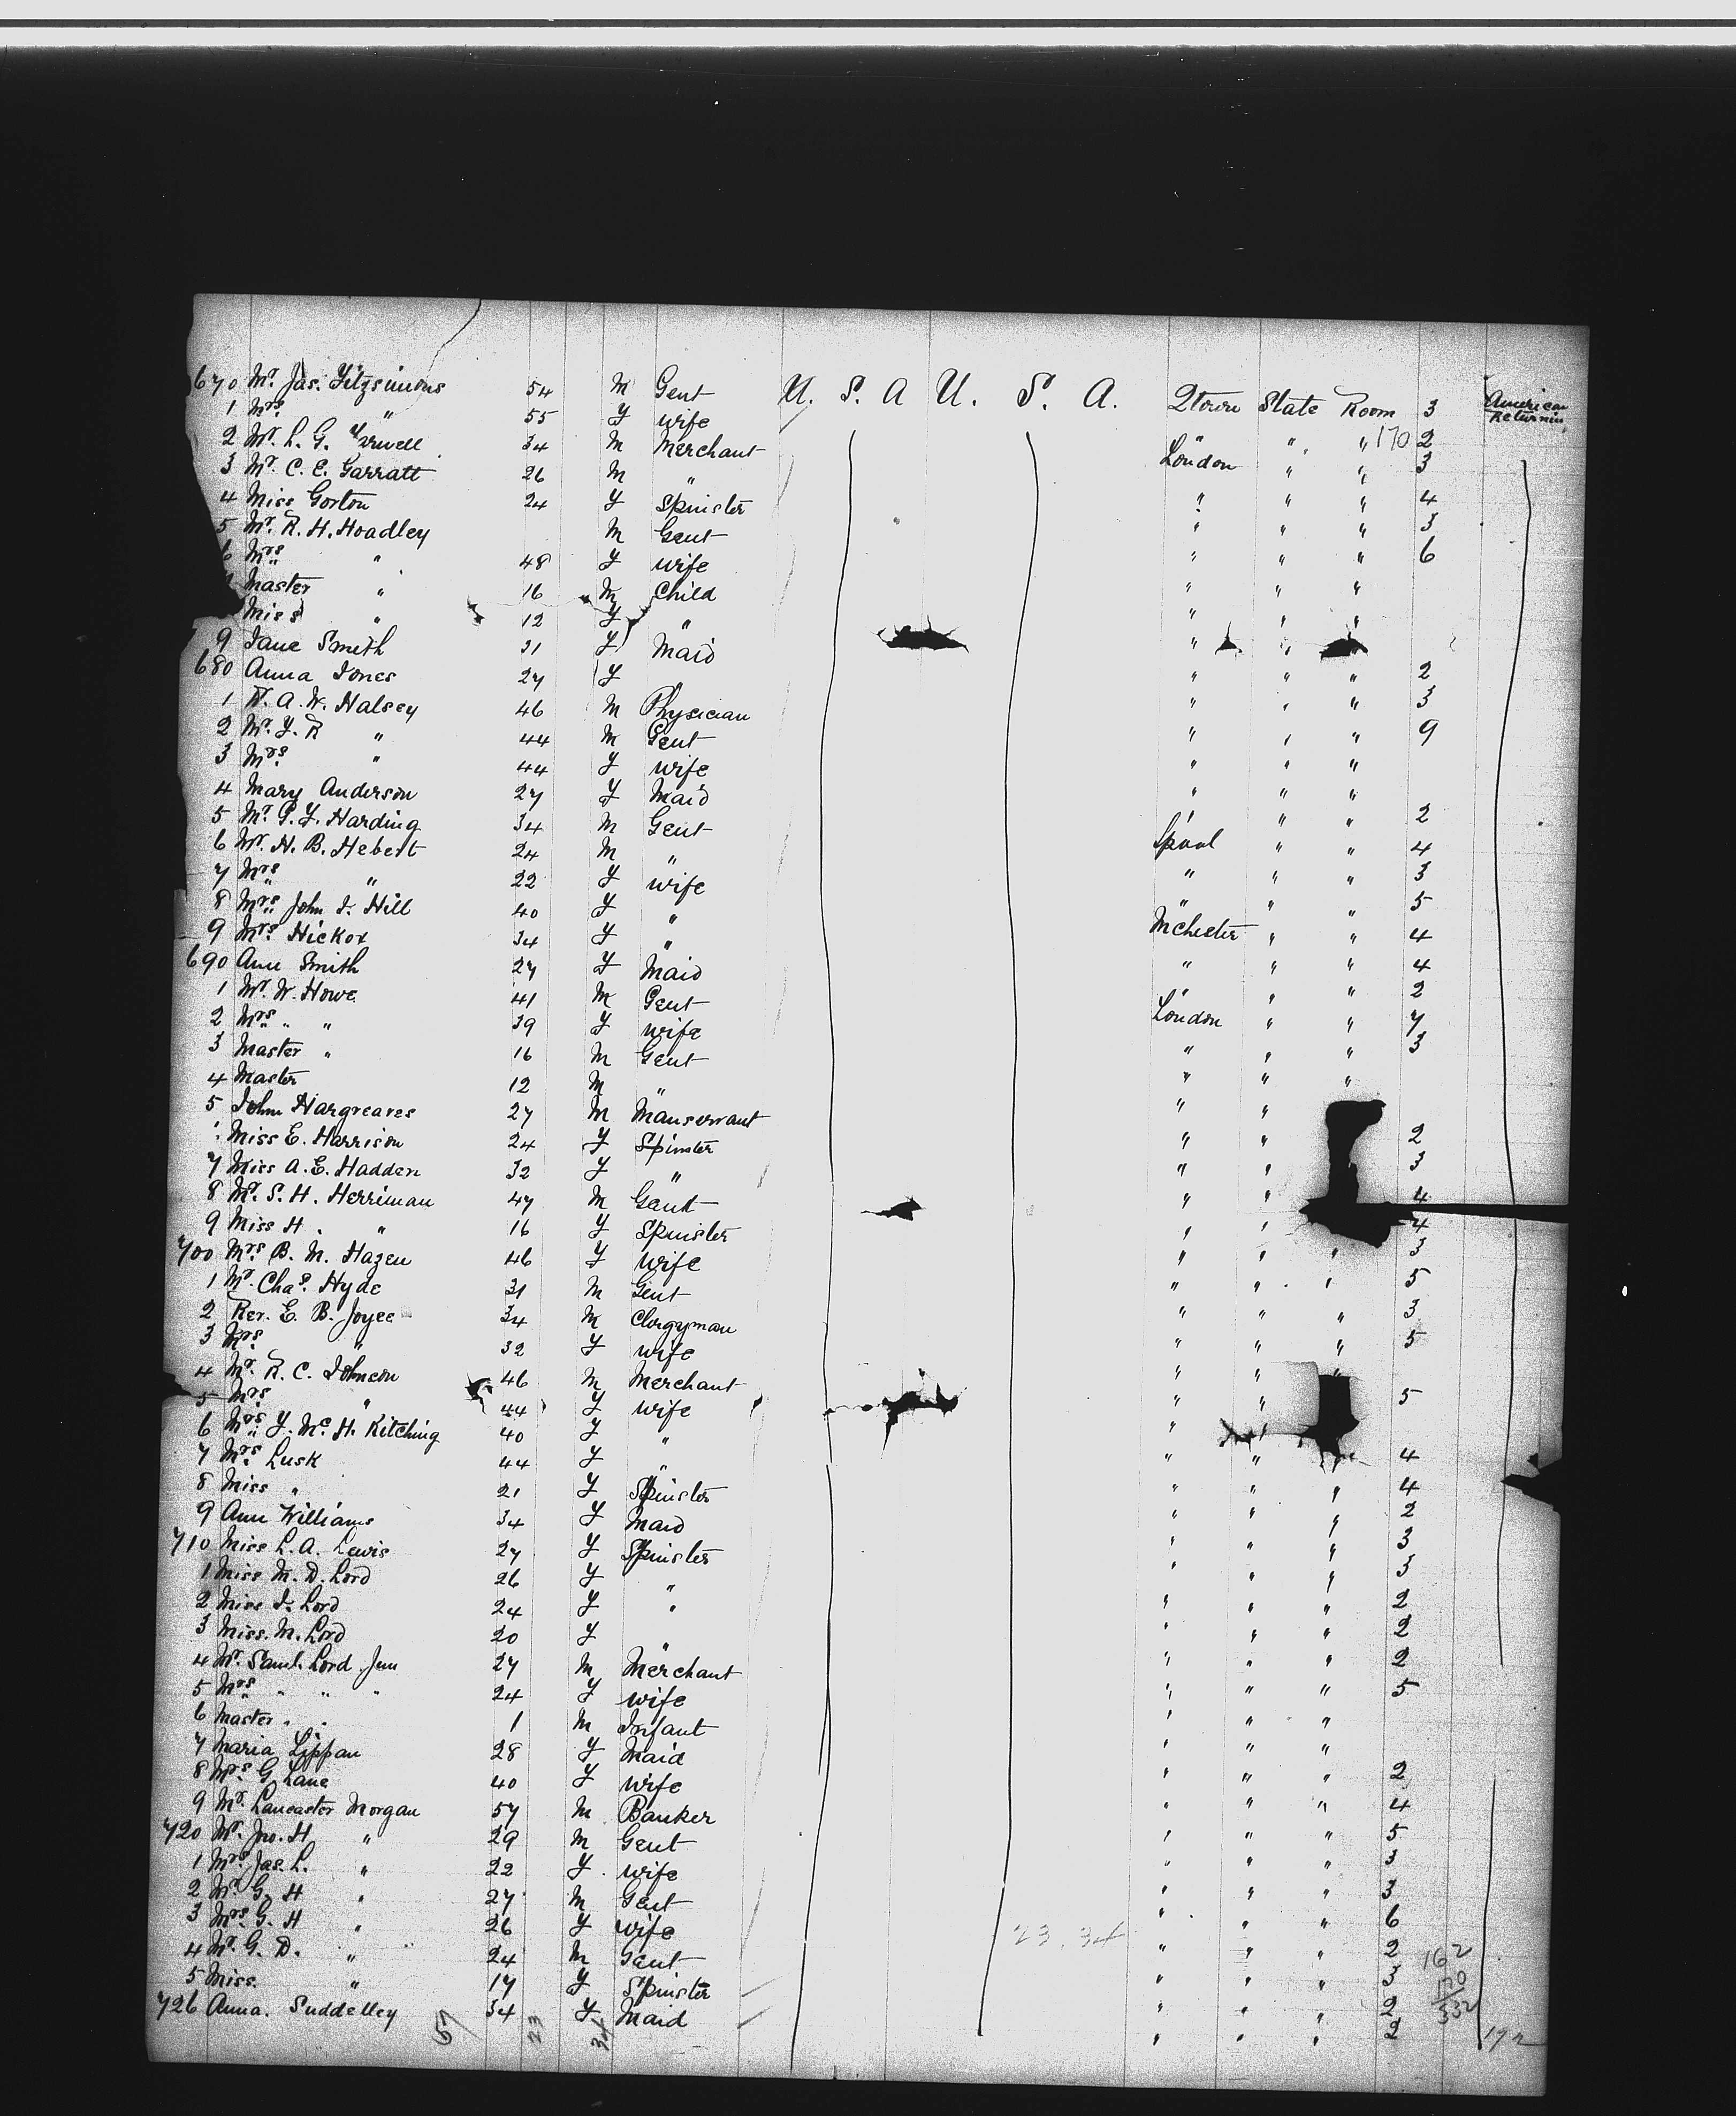 670 Mr. Jas. Fitzsimons 54 M Gent U. S. A U. S. A. Qtown State Room 3 American Returnin
1 Mrs. " 55 F wife " " " 170 2
2 Mr. L. G. 34 M Merchant London " " 3
3 Mr. C. E. Garratt 26 M " " " " 4
4 Miss Gorton 24 F Spinster " " " 3
5 Mr. R. H. Hoadley M Gent " " " 6
6 Mrs " 48 F wife " " "
Master " 16 M Child " " "
Miss " 12 F " " "
9 Jane Smith 31 F Maid " " "
680 Anna Jones 27 F " " " " 2
1 W. A. W. Halsey 46 M Physician " " " 3
2 Mr. F. R " 44 M Gent " " " 9
3 Mrs. " 44 F wife " " "
4 Mary Anderson 27 F Maid " " "
5 Mr. G. F. Harding 34 M Gent " " " 2
6 Mr. H. B. Hebert 24 M " Lpool " " 4
7 Mrs " 22 F wife " " " 3
8 Mrs. John J. Hill 40 F " " " " 5
9 Mrs. Hickox 34 F " Mchester " " 4
690 Ann Smith 27 F Maid " " " 4
1 Mr. W. Howe 41 M Gent " " " 2
2 Mrs " " 39 F wife London " " 7
3 Master " 16 M Gent " " " 3
4 Master 12 M " " " "
5 John Hargreaves 27 M Manservant " "
Miss E. Harrison 24 F Spinster " " 2
7 Miss A. E. Hadden 32 F " " " 3
8 Mr. S. H. Herriman 47 M Gent " " 4
9 Miss H. " 16 F Spinster " " 4
700 Mrs B. M. Hazen 46 F wife " " " 3
1 Mr. Chas. Hyde 31 M Gent " " " 5
2 Rev. E. B. Joyce 34 M Clergyman " " " 3
3 Mrs. " 32 F wife " " " 5
4 Mr. R. C. Johnson 46 M Merchant " " "
5 Mrs " 44 F wife " " 5
6 Mrs F. Mc. H. Kitching 40 F " "
7 Mrs. Lusk 44 F " " " " 4
8 Miss " 21 F Spinster " " " 4
9 Ann Williams 34 F Maid " " " 2
710 Miss L. A. Lewis 27 F Spinster " " " 3
1 Miss M. D. Lord 26 F " " " " 3
2 Miss J. Lord 24 F " " " " 2
3 Miss. M. Lord 20 F " " " " 2
4 Mr. Saml. Lord Jun 27 M Merchant " " " 2
5 Mrs " " " 24 F wife " " " 5
6 Master " " 1 M Infant " " "
7 Maria Lippan 28 F Maid " " "
8 Mrs G Lane 40 F wife " " " 2
9 Mr. Lancaster Morgan 57 M Banker " " " 4
720 Mr. Jno. H " 29 M Gent " " " 5
1 Mrs. Jas. L. " 22 F wife " " " 3
2 Mr G. H " 27 M Gent " " " 3
3 Mrs. G. H " 26 F wife " " " 6
4 Mr. G. D. " 24 M Gent 23.34 " " " 2 162
5 Miss. " 17 F Spinster " " " 3 170
726 Anna. Suddelley 34 F Maid " " " 2 332
57 23 34 " " " 2 172